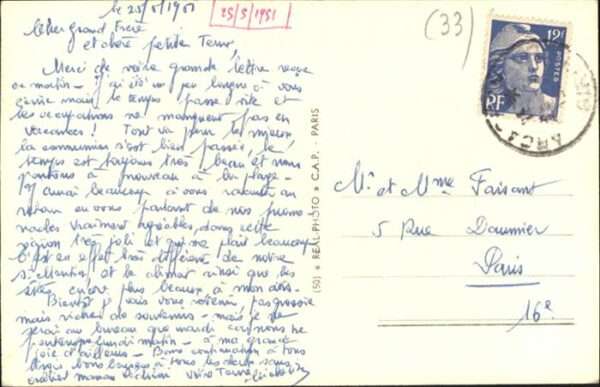 le 25/5/1951
25/5/1951
(33)
Cher grand Frère
et chère petite
Merci de votre grande lettre reçue
ce matin - J'ai été un peu longue à vous
écrire mais le temps passe vite et
les occupations ne manquent pas en
vacances! Tout va pour le mieux
la communion s'est bien passée, le
temps est toujours très beau et nous
partons à nouveau à la plage -
J'aurai beaucoup à vous raconter au
retour en vous parlant de nos prome
nades vraiment agréables dans cette
région très joli et qui me plait beaucoup
C'est en effet très différent de notre
St et le climat ainsi que les
encore plus beaux à mon avis.
Bientôt je vais vous revenir pas grossie
mais riche de souvenirs - mais je ne
serai au bureau que mardi car nous ne
rentrerons lundi matin - à ma grande
joie d'ailleurs - Bons à tous
bons baisers à tous les deux sans
oublier maman
12F
POSTES
RF
(50) REAL-PHOTO C.A.P. - PARIS
Mr et Mme Faisant
5 Rue Daumier
Paris
16e